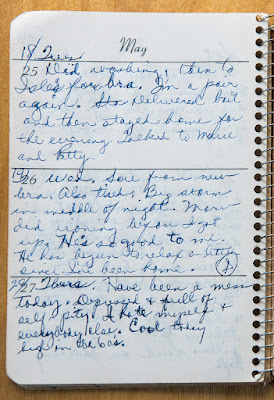 May
18 Tues.
25 Did washing, then to
Isle's for bra. I'm a pair
again. Sta delivered but
and then stayed home for
the evening. Talked to Marie
and Patty.
19
26 Wed. Sore from new
bra. Also tired. Big storm
in middle of night. Marv
did ironing before I got
up. He's so good to me.
He has begun to relax a little
since I've been home.
20
27 Thurs. Have been a mess
today. Depressed & full of
self pity. I hate myself &
everybody else. Cool today
high in the 60's.